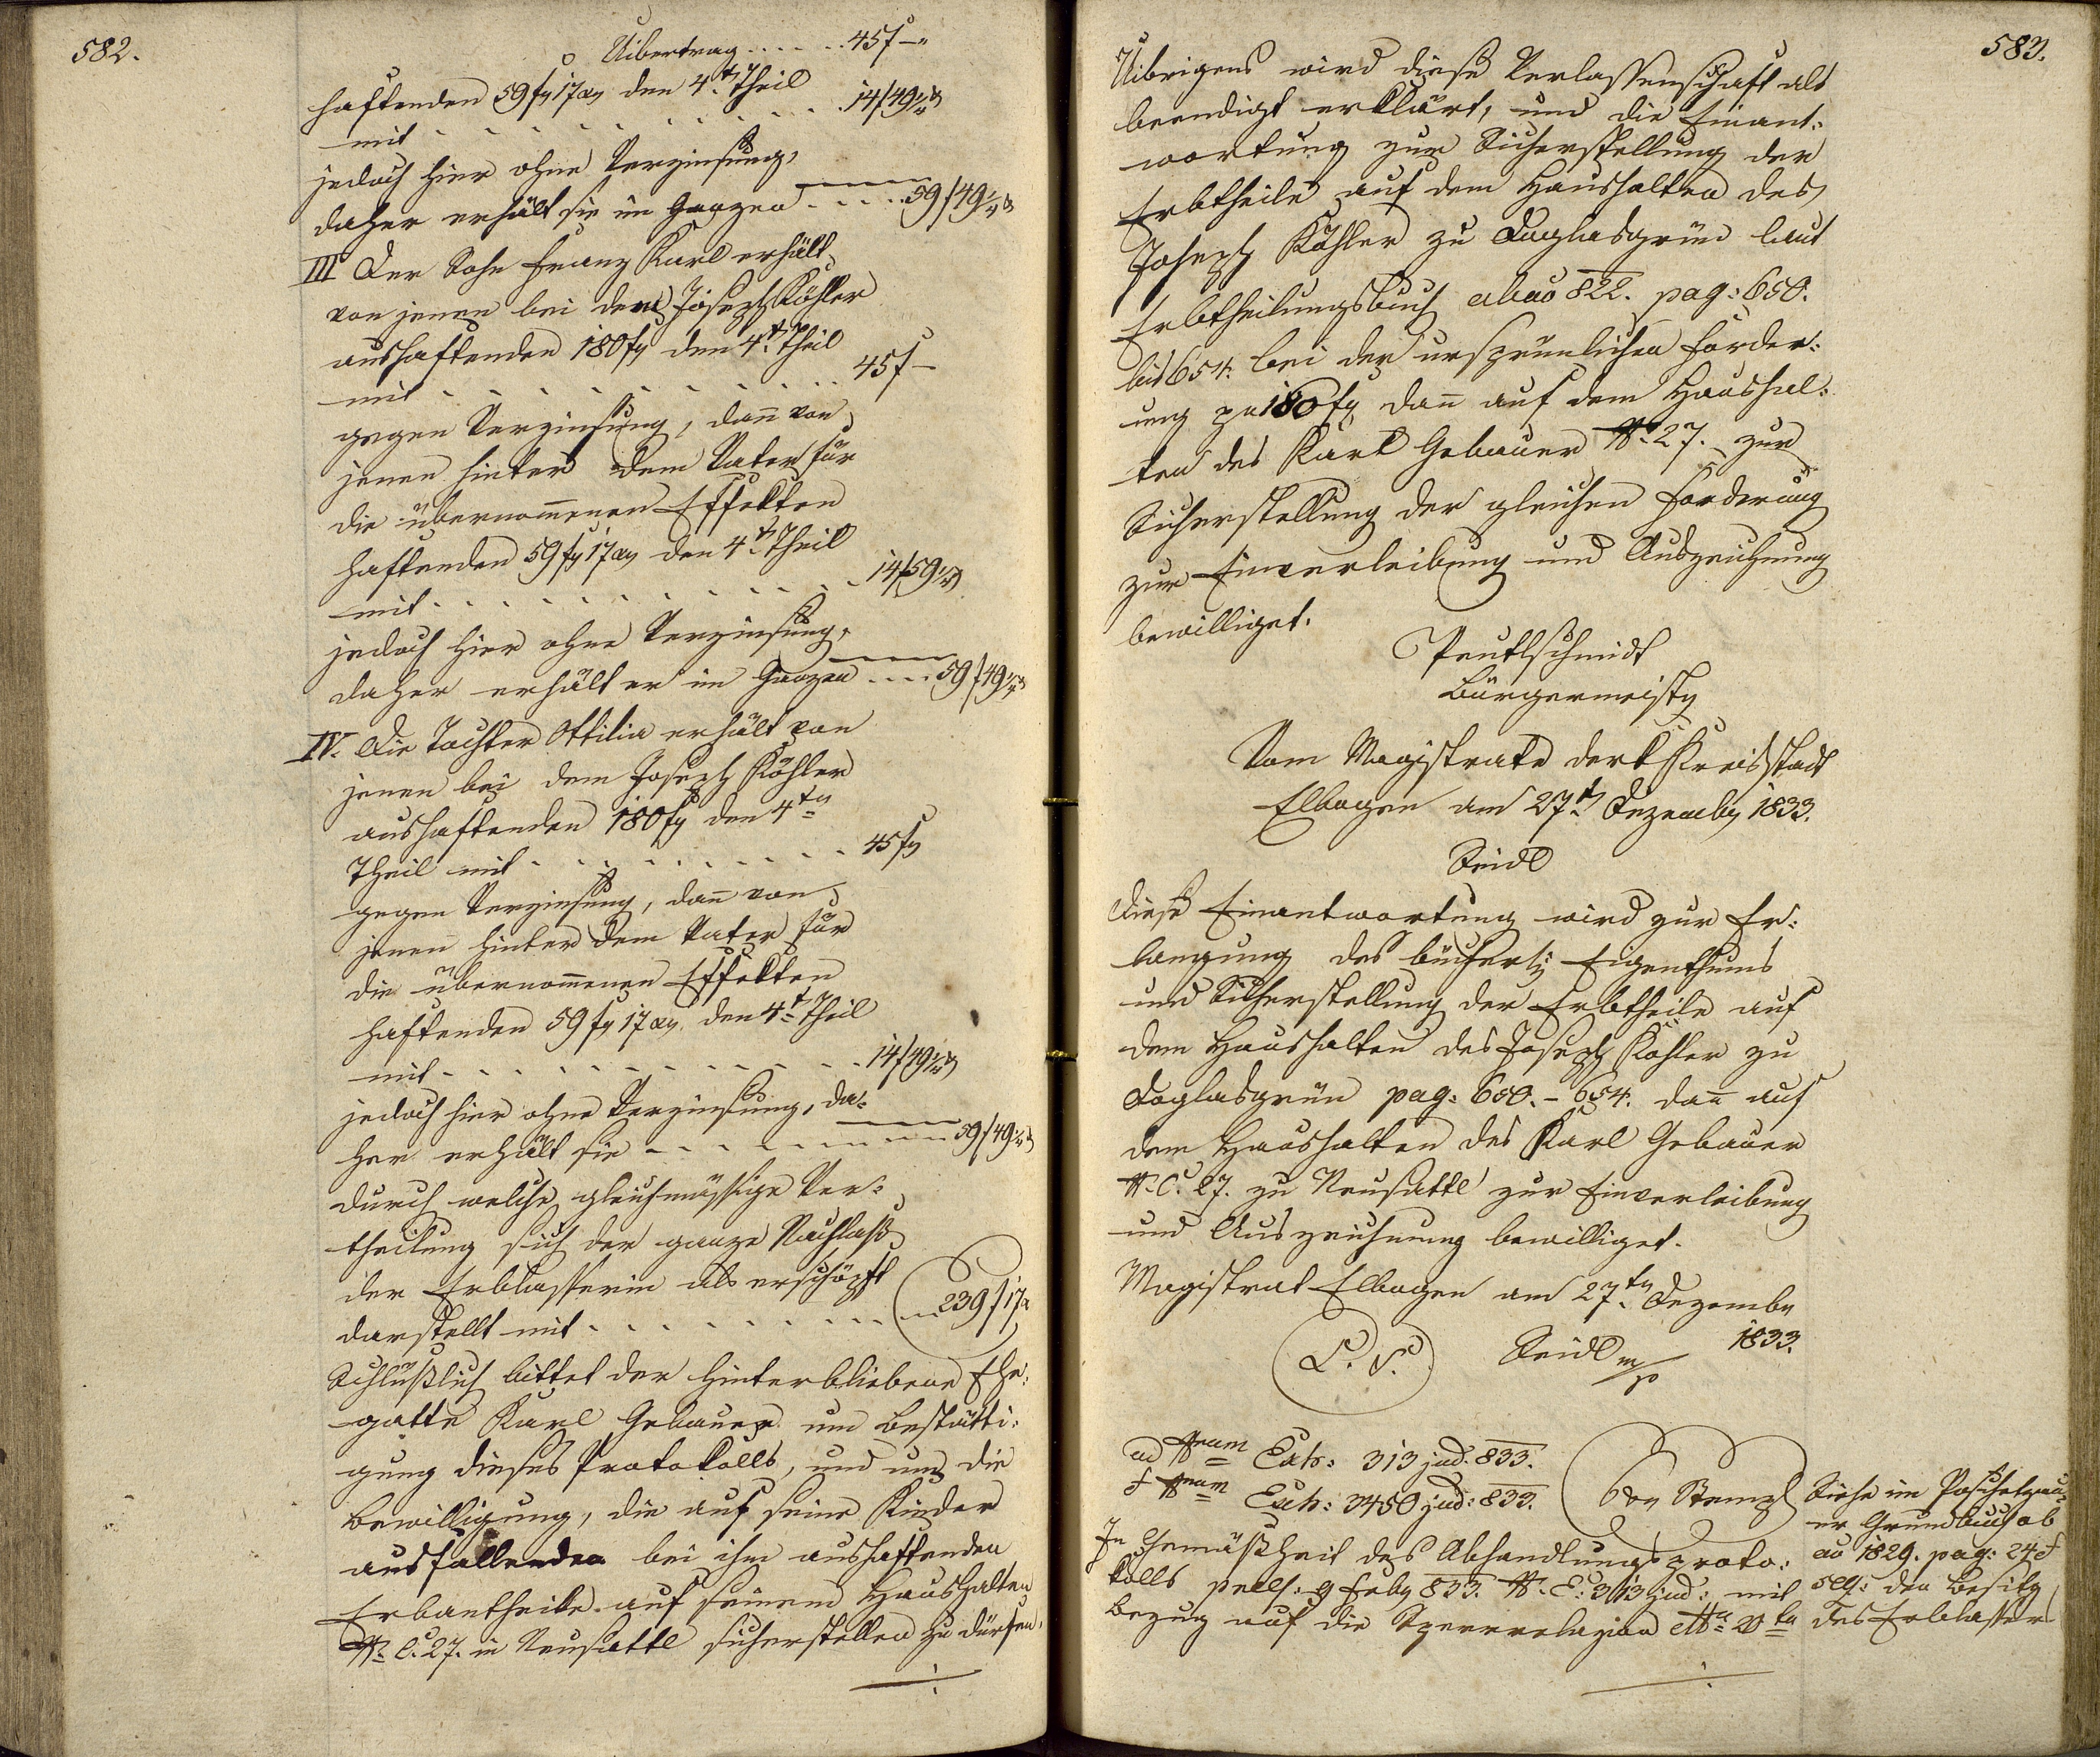 582.
Uibertrag . . . . . . 45f –"
haftenden 59 f 17 x den 4t. Theil
mit . . . . . . . . . . . 14f 49 1/4 x
jedoch hier ohne Verzinsung,
daher erhält sie im Ganzen . . . . . 59f 49 1/4 x
III Der Sohn Franz Karl erhält
von jenen bei dem Joseph Köhler
aushaftenden 180 f den 4t. Theil
mit . . . . . . . . . . . 45f –
gegen Verzinsung, dann von
jenen hinter dem Vater für
die übernommenen Effekten
haftenden 59 f 17 x den 4t. Theil
mit . . . . . . . . . . . 14f 59 1/4 x
jedoch hier ohne Verzinsung,
daher erhält er im Ganzen . . . . 59f 49 1/4 x
IV. Die Tochter Ottilia erhält von
jenen bei dem Joseph Köhler
aushaftenden 180 f den 4tn
Theil mit . . . . . . . . . . 45 f
gegen Verzinsung, dann von
jenen hinter dem Vater für
die übernommenen Effekten
haftenden 59 f 17 x den 4t. Theil
mit . . . . . . . . . . . 14f 49 1/4 x
jedoch hier ohne Verzinsung, da-
her erhält sie . . . . . . . . 59f 49 1/4 x
durch welche gleichmässige Ver-
theilung sich der ganze Nachlaß
der Erblasserin als erschöpft
darstellt mit . . . . . . . . . 239 f 17 x
Schlüßlich bittet der hinterbliebene Ehe-
gatte Karl Gebauer um Bestätti-
gung dieses Protokolls, und um die
Bewilligung, die auf seine Kinder
ausfallenden bei ihm aushaftenden
Erbantheile auf seinem Haushalten
N. C. 27. in Neusattl sicherstellen zu dürfen.
583.
Uibrigens wird diese Verlassenschaft als
beendigt erklärt, und die Einant-
wortung zur Sicherstellung der
Erbtheile auf dem Haushalten des
Joseph Köhler zu Doglasgrün laut
Erbtheilungsbuch ab ao 822. pag: 650.
bis 654. bei der ursprünlichen Forder-
ung pr 180 f dann auf dem Haushal-
ten des Karl Gebauer N. 27. zur
Sicherstellung der gleichen Forderung
zur Einverleibung und Auszeichnung
bewilliget.
Peutlschmidt
Bürgermeister
Vom Magistrate der k Kreisstadt
Elbogen am 27t. Dezember 1833.
Seidl
Diese Einantwortung wird zur Er-
langung des bücherl: Eigenthums
und Sicherstellung der Erbtheile auf
dem Haushalten des Joseph Köhler zu
Doglasgrün pag: 650. – 654. dann auf
dem Haushalten des Karl Gebauer
N. C. 27. zu Neusattl zur Einverleibung
und Auszeichnung bewilliget.
Magistrat Elbogen am 27tn. Dezember
1833.
L. S. Seidl m/p
ad Nrum Exh: 313 jud. 833.
f Nrum Exh: 3450 jud: 833.
6 x Stempl
In Gemäßheit des Abhandlungsproto-
kolls 9 Feber 833. N. E. 313 jud: mit
Bezug auf die Sperrrelazion
Siehe im
er Grundbuch ab
ao 1829. pag: 24
den Besitz
des Erblassers